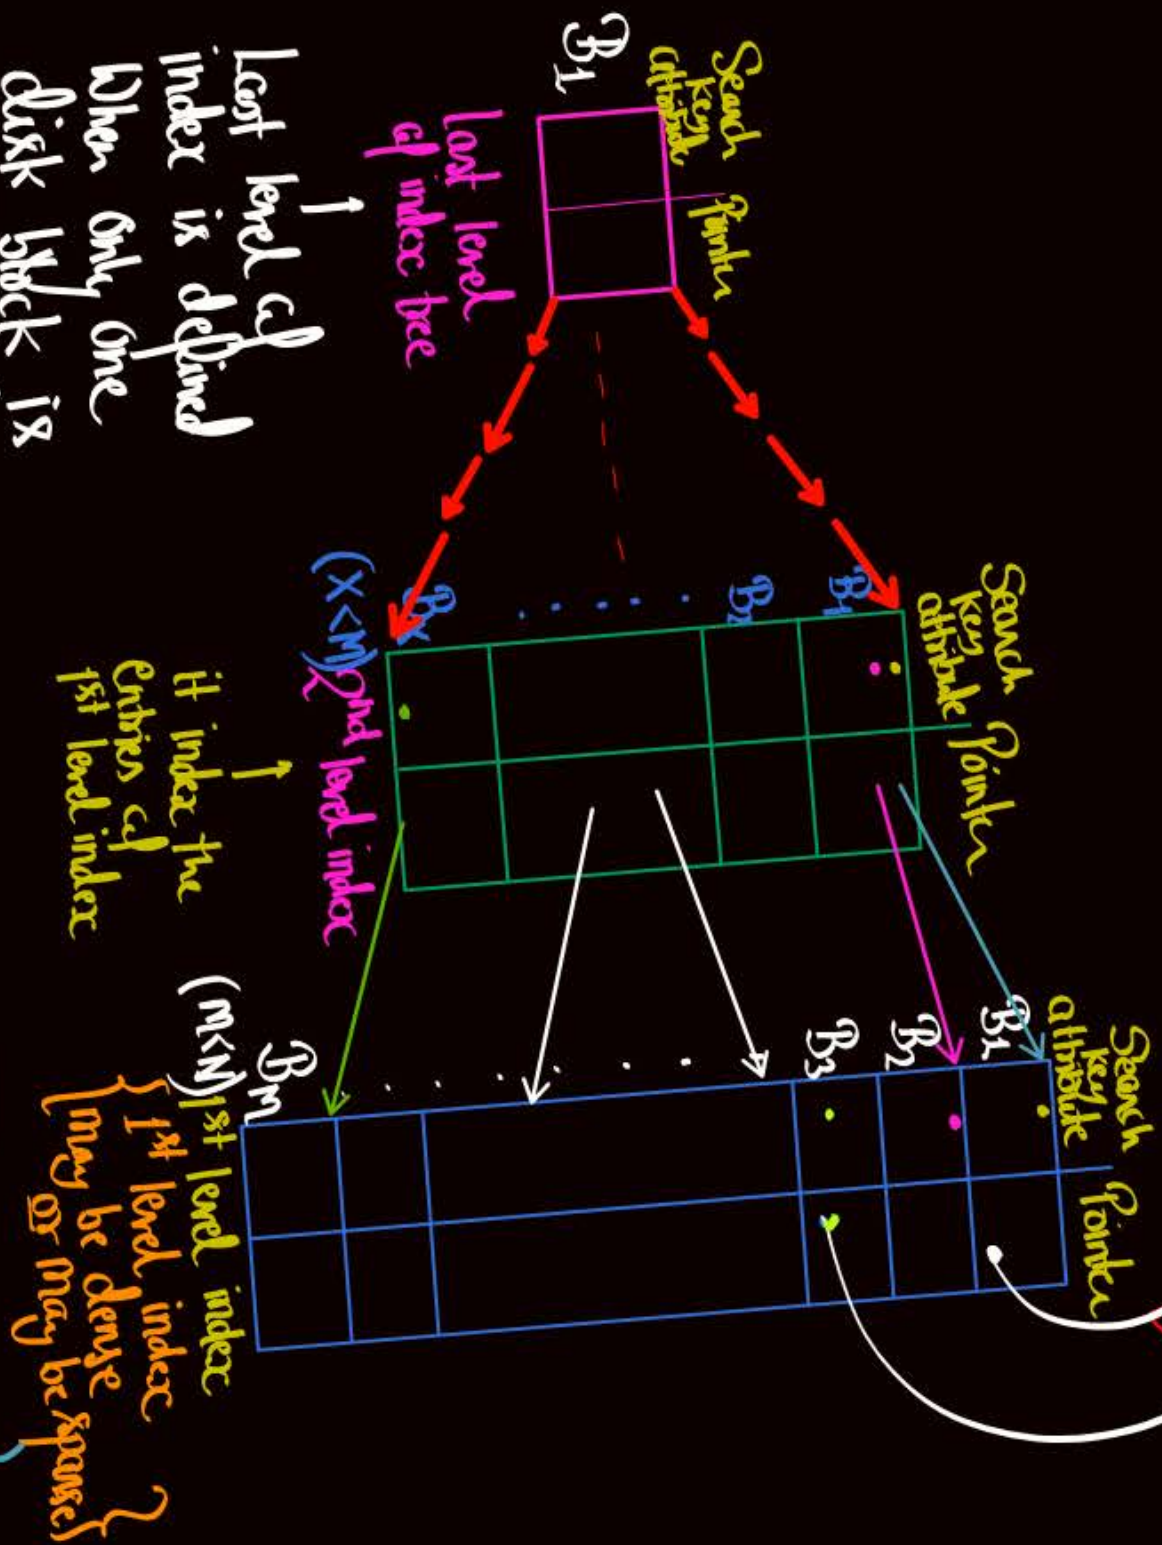 Search
key
attribute
Pointer
B1
Last level
of index tree
Last level of
index is defined
When only one
disk block is
Search
key
attribute
Pointer
B1
B2
Bx
(x<M)
2nd level index
it index the
entries of
1st level index
Search
key
attribute
Pointer
B1
B2
B3
Bm
(M<N)
1st level index
{1st level index
{may be dense }
or may be sparse}